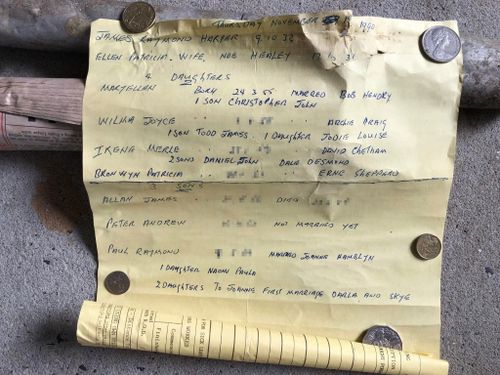 THURSDAY NOVEMBER 1990
JAMES RAYMOND HARPER 9.10.32
ELLEN PATRICIA. WIFE, NEE HEALEY
4 DAUGHTERS
MARYELLEN BORN 24.3.55 MARRIED BOB HENDRY
1 SON CHRISTOPHER JOHN
WILMA JOYCE ARCHIE CRAIG
1 SON TODD JAMES. 1 DAUGHTER JODIE LOUISE
IRENA MERLE DAVID CHETHAM
2 SONS DANIEL JOHN DALE DESMOND
BRONWYN PATRICIA ERNE SHEPPERD
3 SONS
ALLAN JAMES DIED
PETER ANDREW NOT MARRIED YET
PAUL RAYMOND MARRIED JOANNE HAMBLYN
1 DAUGHTER NAOMI PAULA
2 DAUGHTERS TO JOANNE FIRST MARRIAGE DARLA AND SKYE